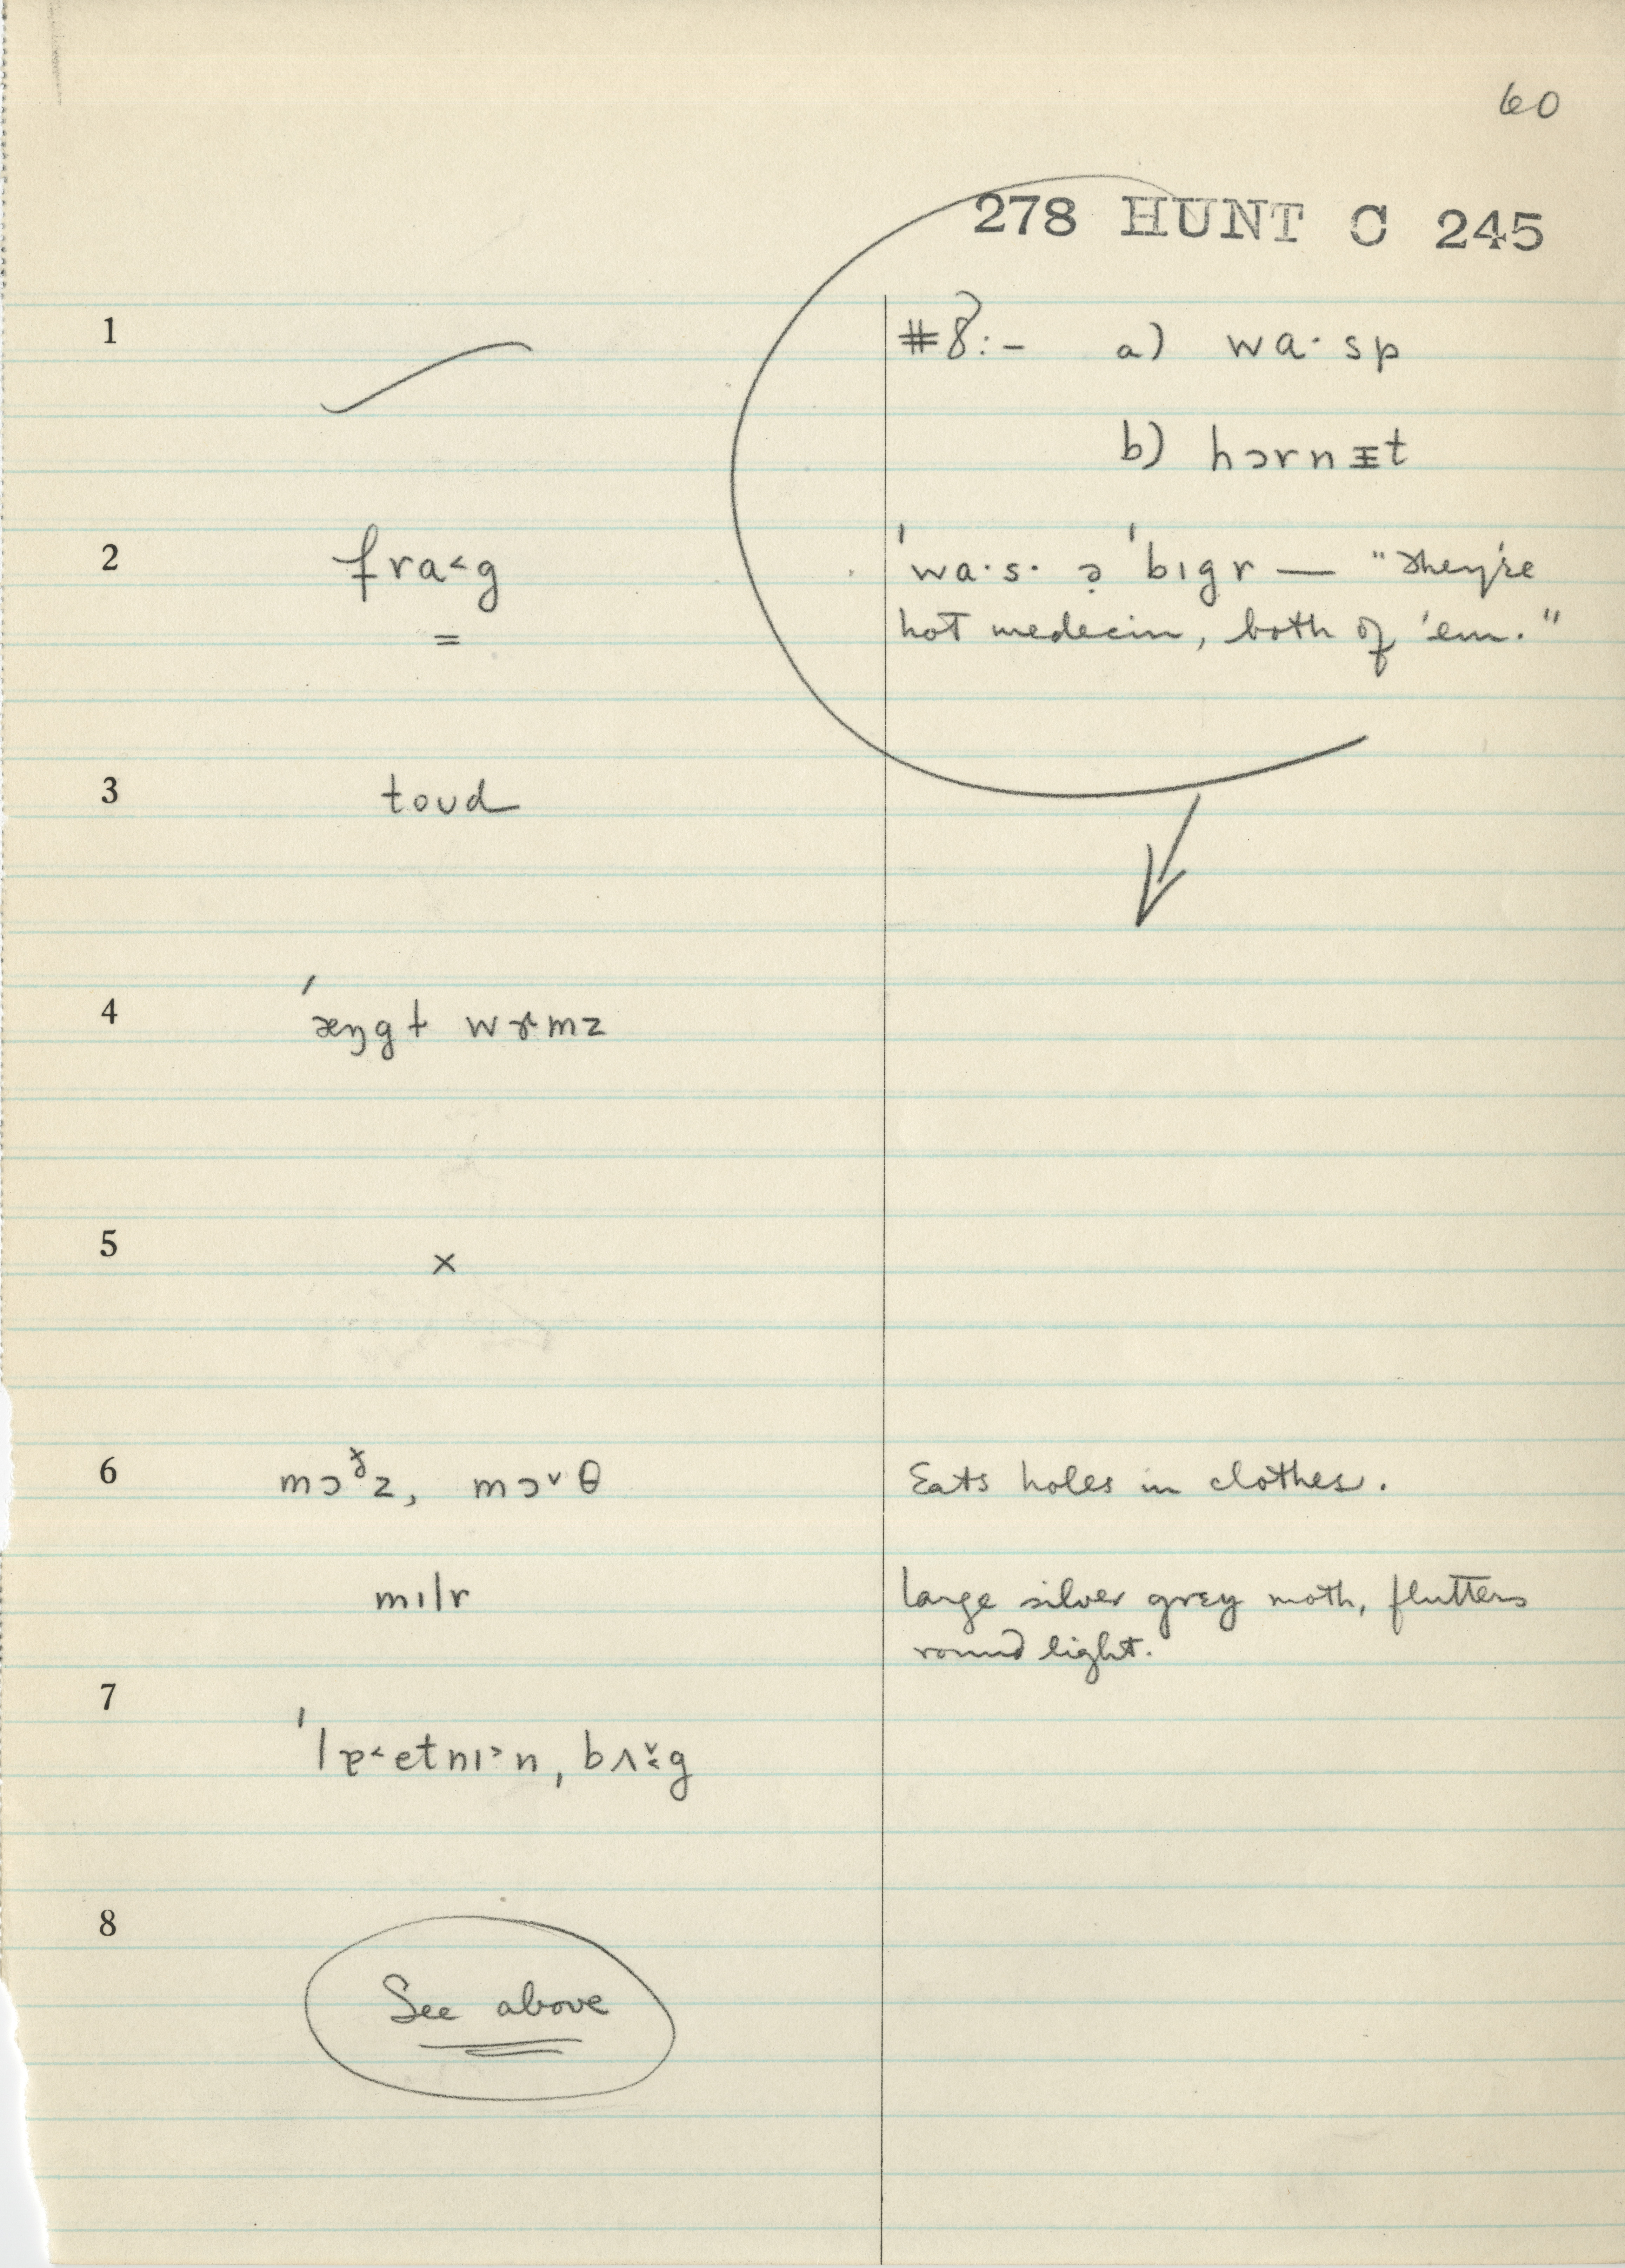 60
278 HUNT C 245
1
#8:- a) wa·sp
b) hɔrnɪ̵t
2 fra˂g ˈwa·s· ə̣ ˈbɪgr — "They're
= hot medecin, both of 'em."
3 toʊd
4 ˈæŋgɫ wɝmz
5 ×
6 mɔᵟz, mɔ˅θ Eats holes in clothes.
mɪlr large silver grey moth, flutters
round light.
7 ˈlɐ˂etnɪ˃n, bʌ˂̌g
8
See above